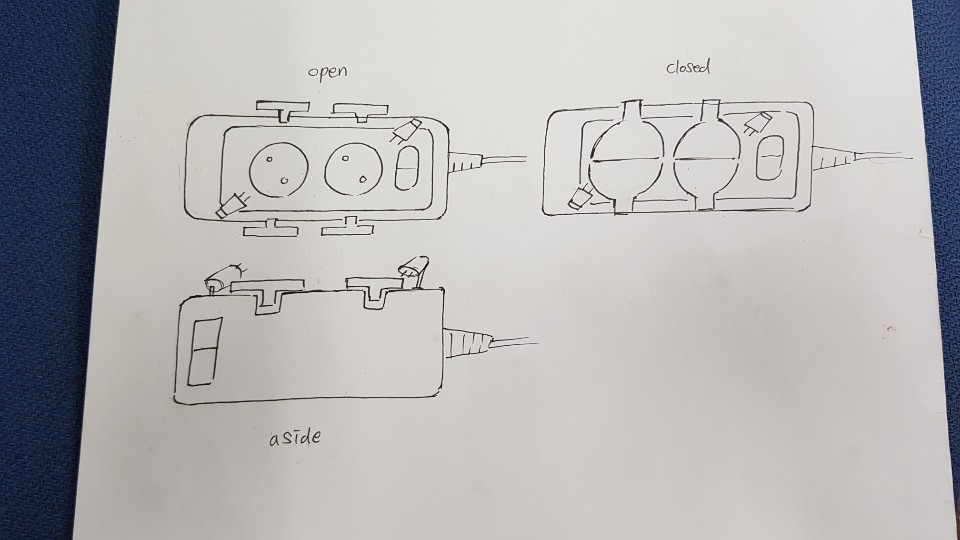 open
closed
aside